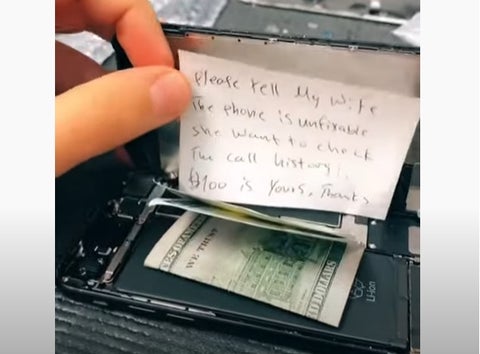 Please tell My Wife
The phone is unfixable
she want to check
The call history.
$100 is Yours. Thanks
WE TRUST
DOLLARS
Li-ion